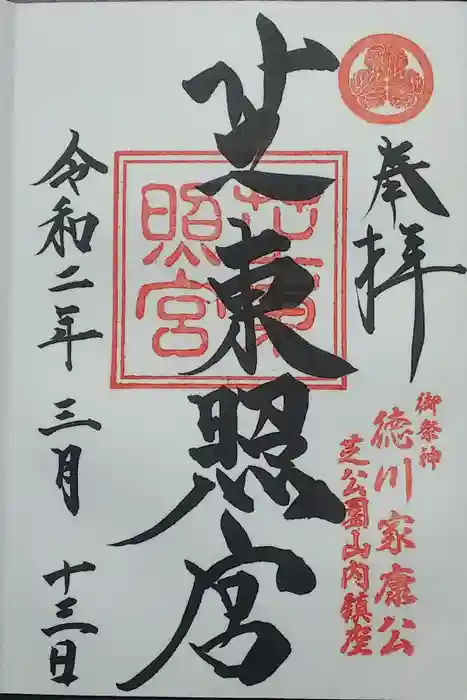 奉拝
御祭神
徳川家康公
芝公園山内鎮座
芝東照宮
芝東
照宮
令和二年 三月 十三日